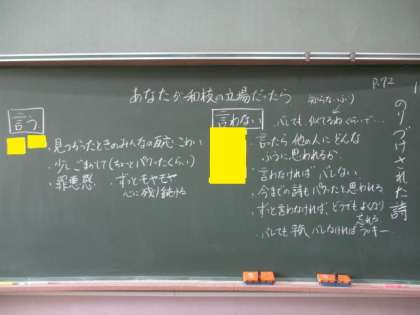 P.92
のりづけされた詩
あなたが和枝の立場だったら
言う
・見つかったときのみんなの反応 こわい
・少しごまかして(ちょっとパクったくらい)
・罪悪感
・ずっとモヤモヤ
心に残り続ける
言わない
知らないふり
・バレても、似てるねくらいで…
・言ったら他の人にどんな
ふうに思われるか
・言わなければバレない
・今までの詩もパクったと思われる
・ずっと言わなければ、どうでもよくなり
忘れる
・バレても平気、バレなければラッキー